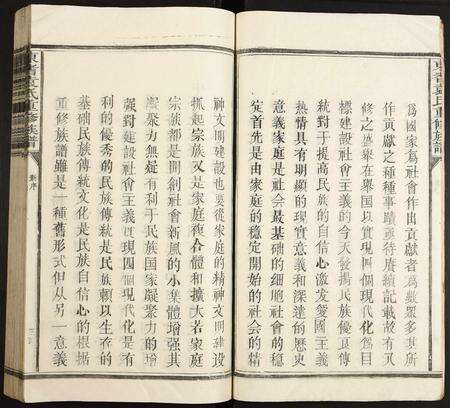 為國家爲社會作出貢獻者爲數眾多其所
作貢獻之種種事蹟亟待賡續記載故有
修之盛舉在舉國以實現四個現代化爲目
標建設社會主義的今天發揚民族優良傳
統對于提高民族的自信心激发愛國主義
熱情具有明顯的現實意義和深遠的歷史
意義家庭是社會最基礎的細胞社會的穩
定首先是由家庭的穩定開始的社会的精
神文明建設也要從家庭的精神文明建設
抓起宗族又是家庭複合體和擴大若家庭
宗族都是開創社會新風的小集體增强其
凝聚力無疑有利于民族国家凝聚力的增
强對建設社會主義实現四個現代化是有
利的優秀的民族傳統是民族賴以生存的
基础民族傳統文化是民族自信心的根据
重修族譜雖是一種舊形式但从另一意義
氏重修族譜
新序
氏重修族譜